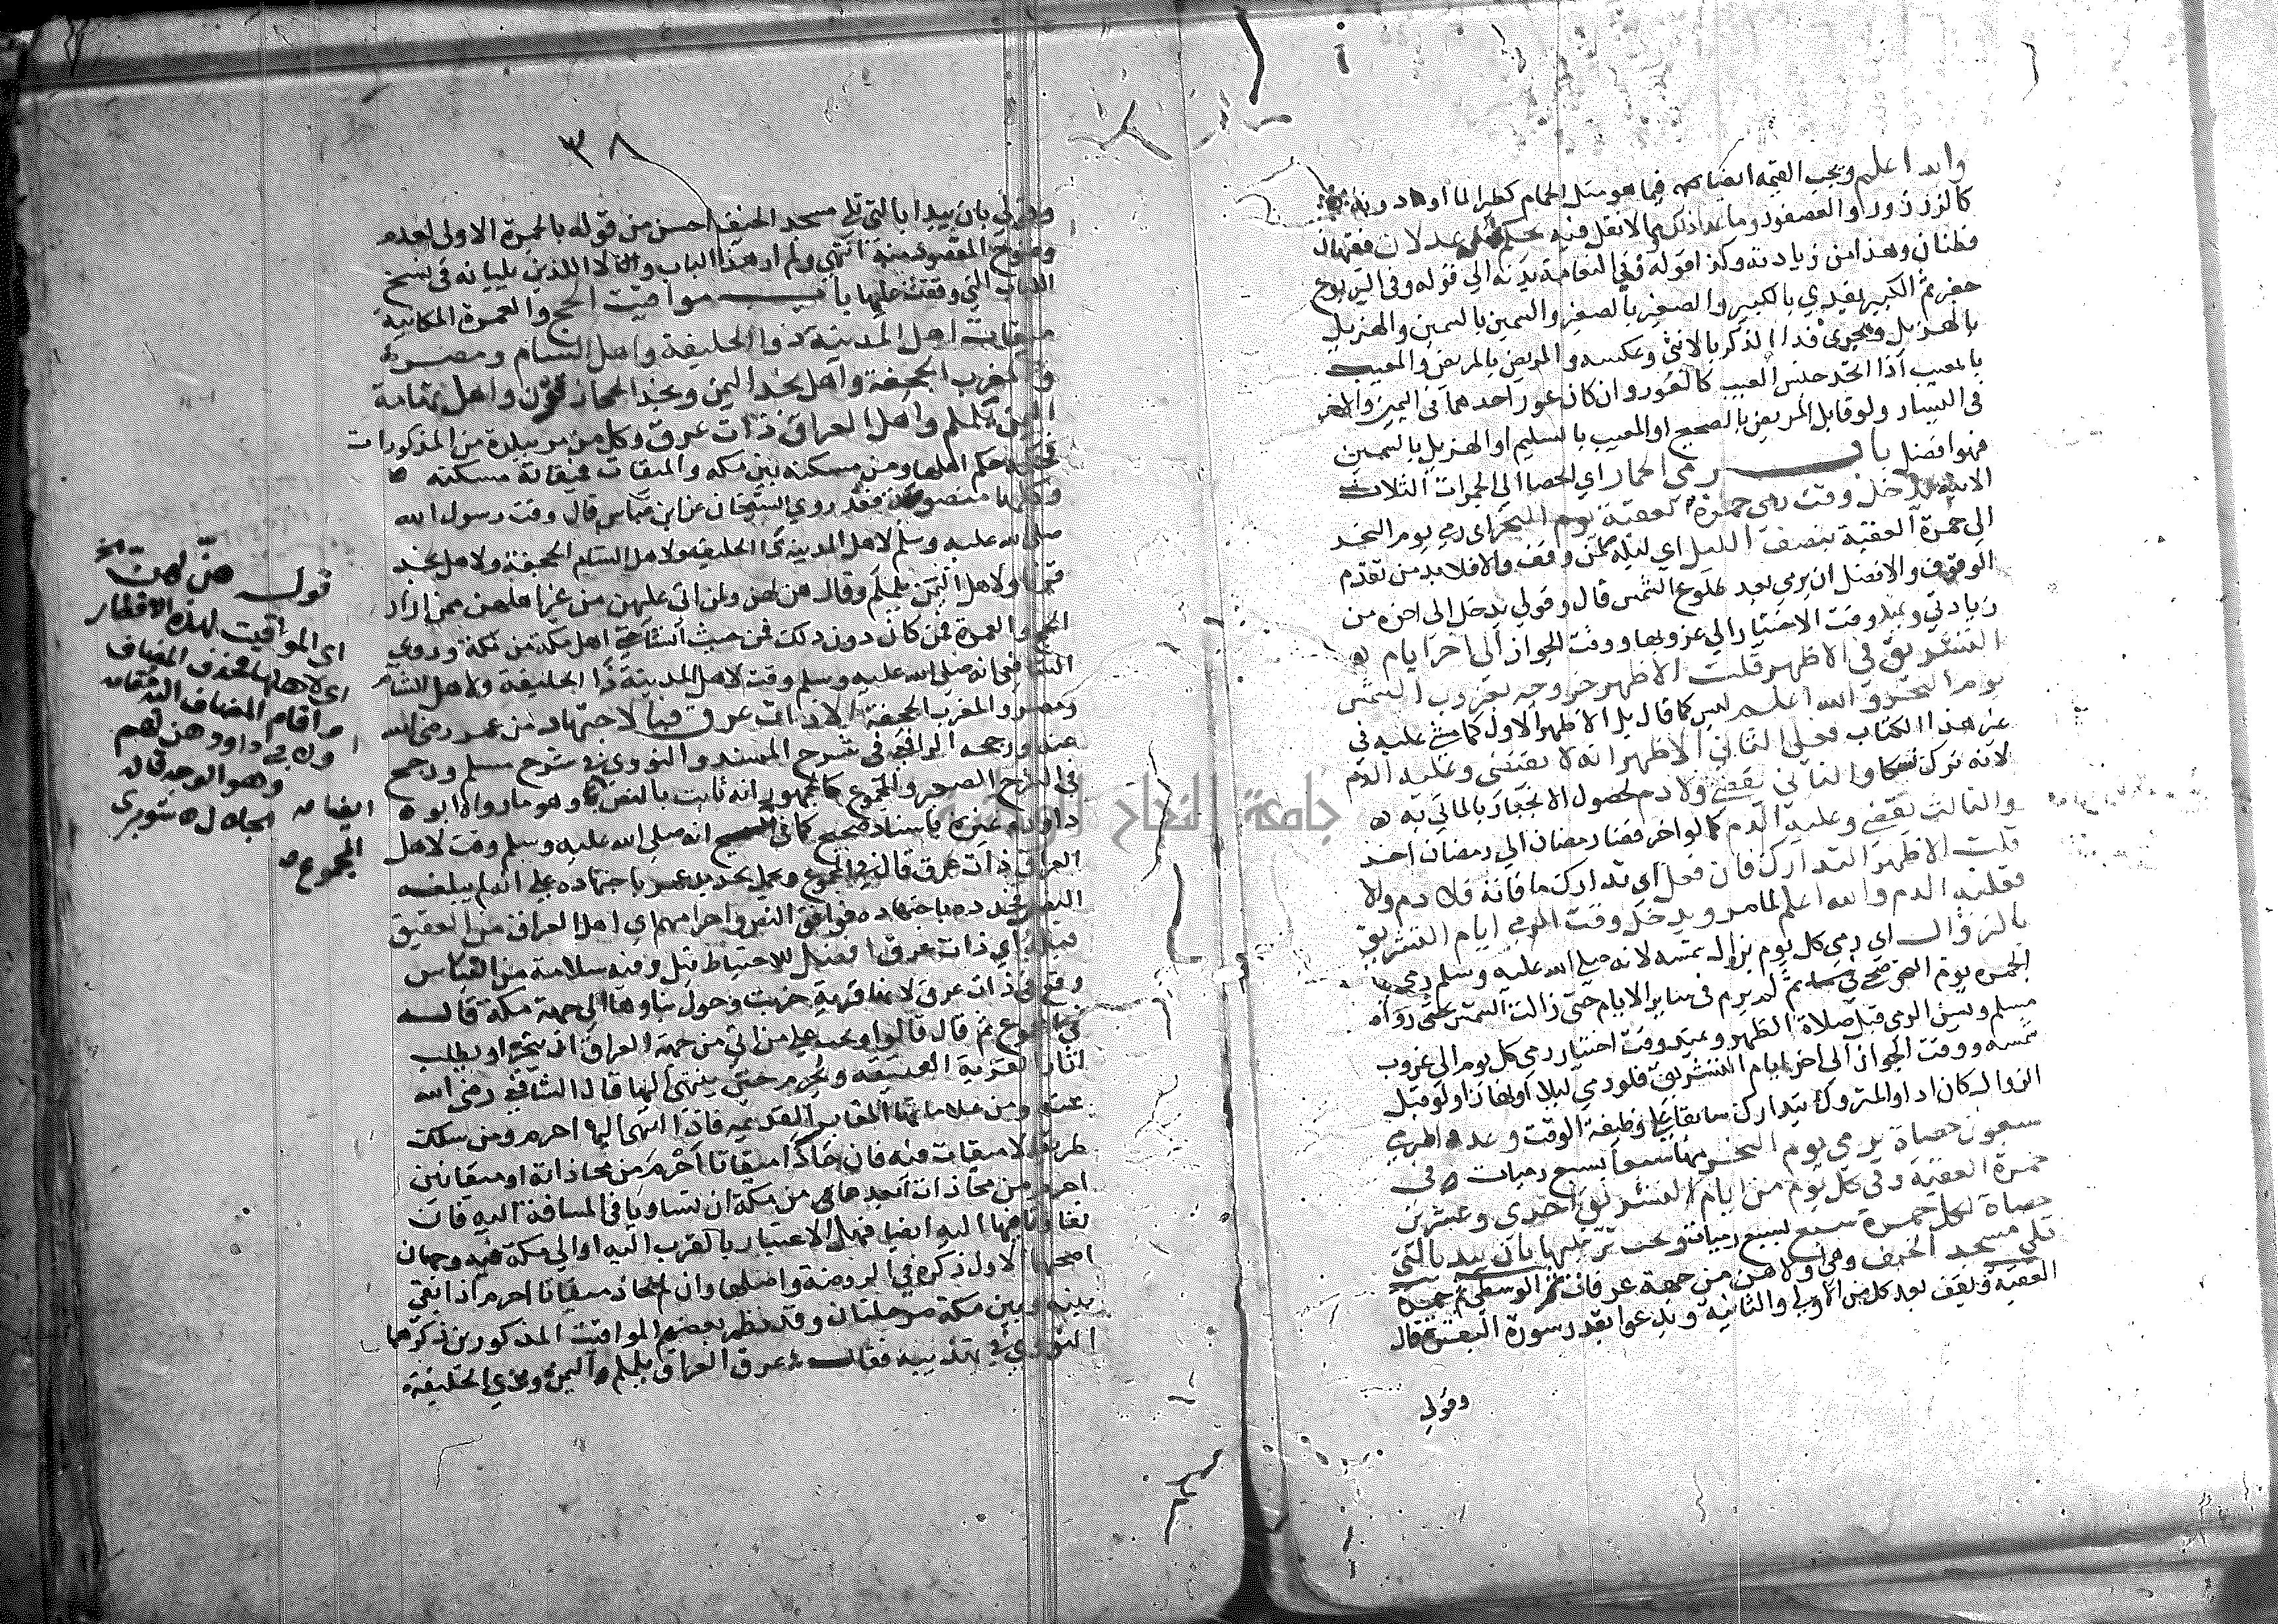 والله اعلم وتجب القيمة ايضا فيما هو مثل الحمام كطير الما او دونه
كالزرزور او العصفور وما عدا ذلك مما لا نقل فيه يحكم عدلان فقيهان
فطنان وهذا من زيادته وكذا قوله وفي النعامة بدنة الى قوله وفي اليربوع
جفرة ثم الكبير يفدي بالكبير والصغير بالصغير والسمين بالسمين والهزيل
بالهزيل ويجزئ فدا الذكر بالانثى وعكسه والمريض بالمريض والمعيب
بالمعيب اذا اتحد جنس العيب كالعور وان كان عور احدهما في اليمين والاخر
في اليسار ولو قابل المريض بالصحيح او المعيب بالسليم او الهزيل بالسمين
فهو افضل باب رمي الجمار اي الحصا الى الجمرات الثلاث
يدخل وقت رمي جمرة العقبة يوم النحر اي رمي يوم النحر
الى جمرة العقبة بنصف الليل اي ليلة لمن وقف والا فلا بد من تقدم
الوقوف والافضل ان يرمي بعد طلوع الشمس قال وقولي يدخل الى اخره من
زيادتي ويمتد وقت الاختيار الى غروبها ووقت الجواز الى اخر ايام
التشريق في الاظهر قلت الاظهر خروجه بغروب الشمس
يوم النحر والله اعلم ليس كما قال بل الاظهر الاول كما مشى عليه في
غير هذا الكتاب فعلى الثاني الاظهر انه لا يقضى وعليه الدم
لانه ترك نسكا والثاني يقضي ولا دم لحصول الانجبار بالماتي به
والثالث يقضي وعليه الدم كما لو اخر قضا رمضان الى رمضان اخر
قلت الاظهر التدارك فان فعل اي تدارك ما فاته فلا دم والا
فعليه الدم والله اعلم لما مر ويدخل وقت الرمي ايام التشريق
بالزوال اي رمي كل يوم بزوال شمسه لانه صلى الله عليه وسلم رمى
الجمرة يوم النحر ضحى ثم لم يرم في ساير الايام حتى زالت الشمس رواه
مسلم ويسن الرمي قبل صلاة الظهر ويمتد وقت اختيار رمي كل يوم الى غروب
شمسه ووقت الجواز الى اخر ايام التشريق فلو رمى ليلا او نهارا ولو قبل
الزوال كان ادا والمتروك يتدارك سابقا على وظيفة الوقت وعدد الرمي
سبعون حصاة يرمي يوم النحر منها سبعا بسبع رميات في
جمرة العقبة وفي كل يوم من ايام التشريق احدى وعشرين
حصاة لكل جمرة سبع بسبع رميات ويجب ترتيبها بان يبدا بالتي
تلي مسجد الخيف وهي اولاهن من جهة عرفات ثم الوسطى ثم جمرة
العقبة ويقف بعد كل من الاولى والثانية ويدعوا بقدر سورة البقرة قال
وقولي
٣٨
وقولي بان يبدا بالتي تلي مسجد الخيف احسن من قوله بالجمرة الاولى لعدم
وضوح المقصود منه انتهى ولم ار هذا الباب ولا اللذين يليانه في نسخ
اللباب التي وقفت عليها باب مواقيت الحج والعمرة المكانية
ميقات اهل المدينة ذو الحليفة واهل الشام ومصر
والمغرب الجحفة واهل نجد اليمن ونجد الحجاز قرن واهل تهامة
اليمن يلملم واهل العراق ذات عرق وكل من مر ببلدة من المذكورات
حكم اهلها ومن مسكنه بين مكة والميقات فميقاته مسكنه
وكلها منصوصة فقد روى الشيخان عن ابن عباس قال وقت رسول الله
صلى الله عليه وسلم لاهل المدينة ذا الحليفة ولاهل الشام الجحفة ولاهل نجد
قرنا ولاهل اليمن يلملم وقال هن لهن ولمن اتى عليهن من غير اهلهن ممن اراد
الحج والعمرة فمن كان دون ذلك فمن حيث أنشأ حتى اهل مكة من مكة وروى
الشافعي انه صلى الله عليه وسلم وقت لاهل المدينة ذا الحليفة ولاهل الشام
ومصر والمغرب الجحفة الا ذات عرق فبالاجتهاد من عمر رضي الله
عنه ورجحه الرافعي في شرح المسند والنووي في شرح مسلم ورجح
في الشرح الصغير والمجموع كالجمهور انه ثابت بالنص وهو ما رواه ابو
داود وغيره باسناد صحيح كما في انه صلى الله عليه وسلم وقت لاهل
العراق ذات عرق قال في المجموع ويحمل تحديد عمر باجتهاده على انه لم يبلغه
النص فحدده باجتهاده فوافق النص واحرامهم اي اهل العراق من العقيق
قبيل اي ذات عرق افضل للاحتياط قيل وفيه سلامة من التباس
وقع في ذات عرق لانها قرية خربت وحول بناوها الى جهة مكة قال
في المجموع ثم قال قالوا ويجب على من اتى من جهة العراق ان يتحرى ويطلب
اثار القرية العتيقة ويحرم حين ينتهي اليها قال الشافعي رضي الله
عنه ومن علاماتها المقابر القديمة فاذا انتهى اليها احرم ومن سلك
طريقا لا ميقات فيه فان حاذا ميقاتا احرم من محاذاته او ميقاتين
احرم من محاذات ابعدهما من مكة ان تساويا في المسافة اليه فان
تفاوتا فيها اليه ايضا فهل الاعتبار بالقرب اليه او الى مكة فيه وجهان
اصحهما الاول ذكره في الروضة واصلها وان لم يحاذ ميقاتا احرم اذا بقي
بينه وبين مكة مرحلتان وقد نظم بعضهم المواقيت المذكورين ذكرهما
النووي في تهذيبه فقال عرق العراق يلملم اليمن وبذي الحليفة
قوله هن لهن الخ
اي المواقيت لهذه الاقطار
اي لاهلها فحذف المضاف
واقام المضاف اليه مقامه
ولابي داوود هن لهم
وهو الوجه قاله
ايضا الجلال شوبري
المجموع
جامعة النجاح الوطنية